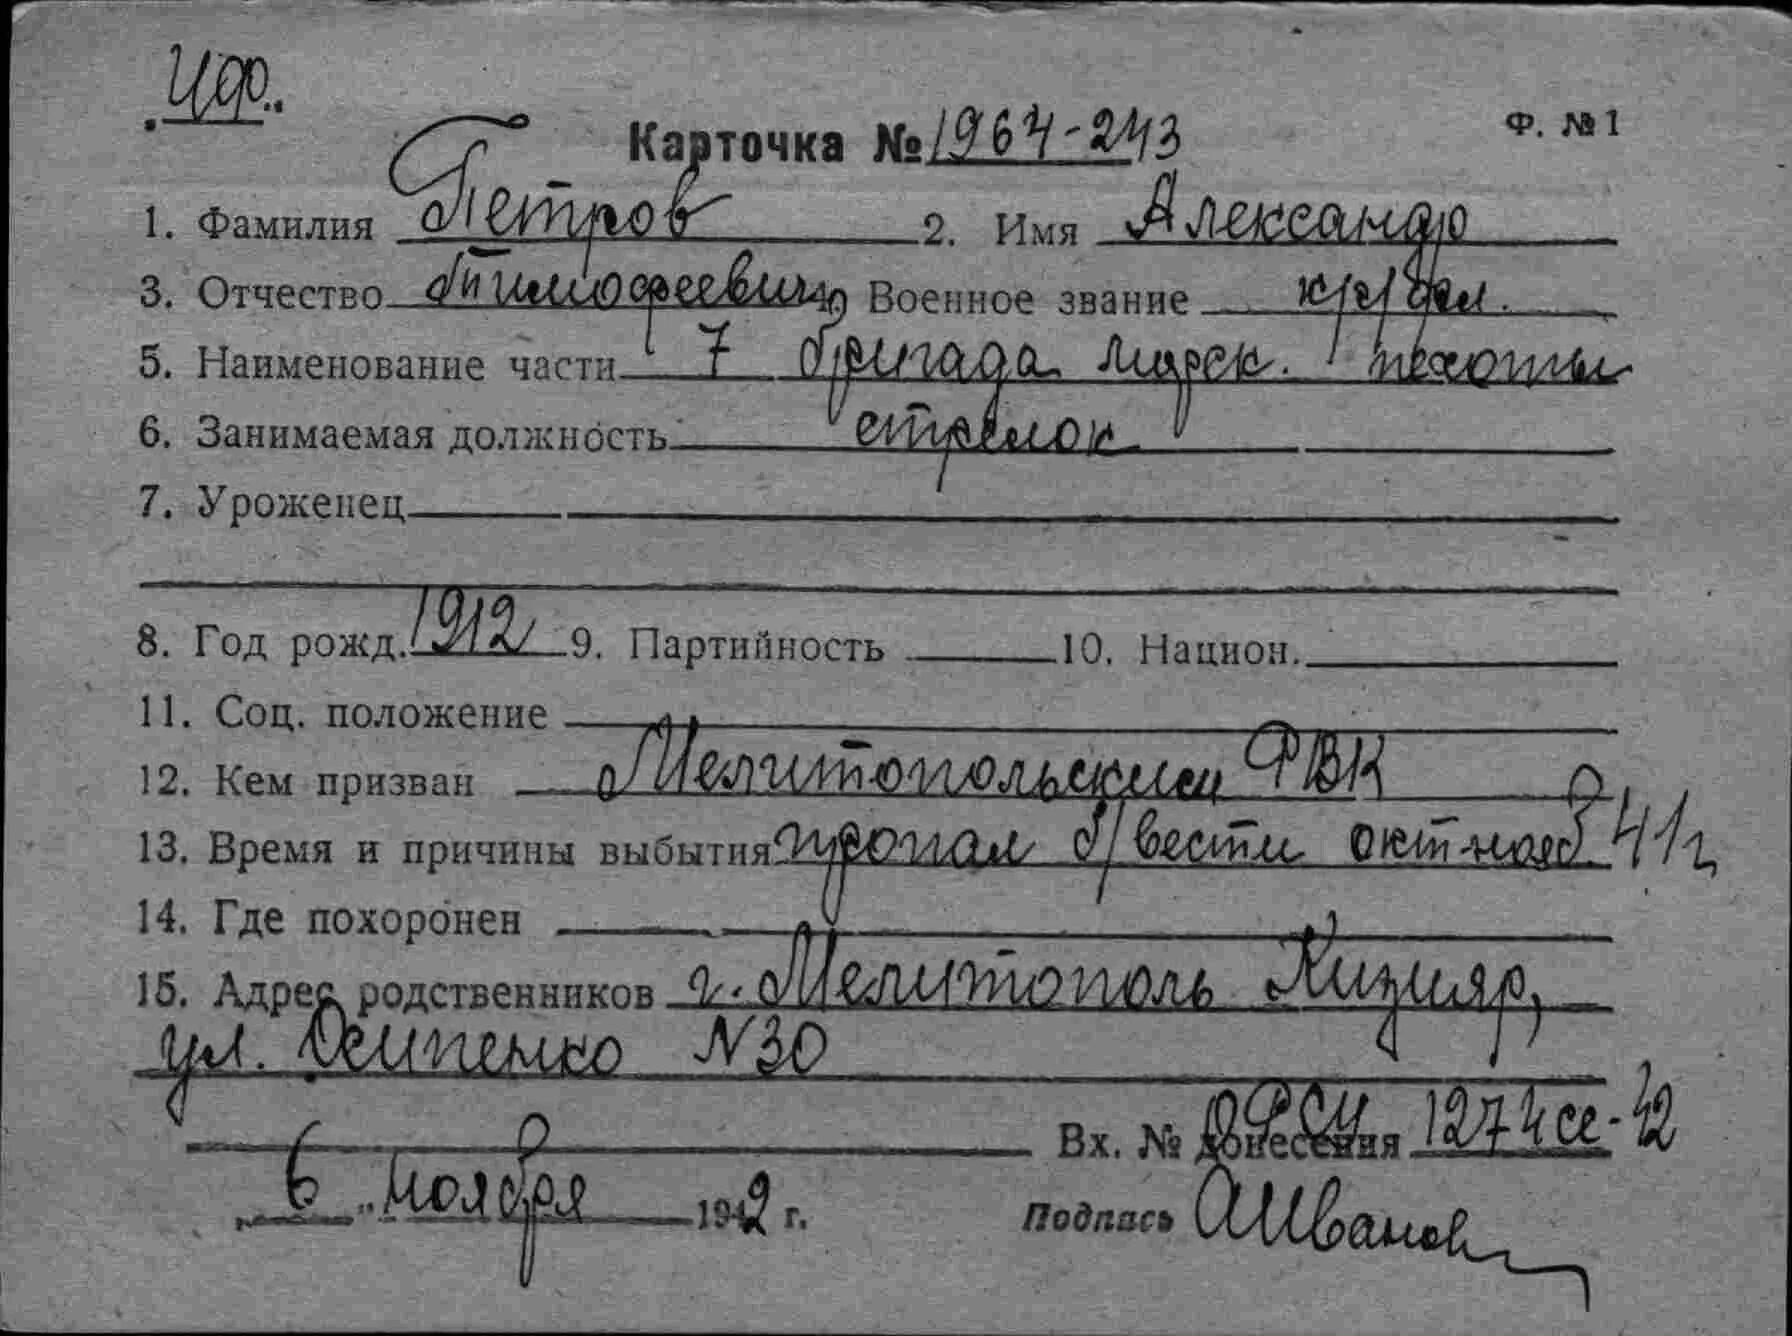 Карточка № 1964-243
Ф. № 1
1. Фамилия Петров 2. Имя Александр
3. Отчество Тимофеевич Военное звание кр/фл.
5. Наименование части 7 бригада морск. пехоты
6. Занимаемая должность стрелок
7. Уроженец
8. Год рожд. 1912 9. Партийность 10. Национ.
11. Соц. положение
12. Кем призван Мелитопольский РВК
13. Время и причины выбытия пропал б/вести окт-нояб 41 г.
14. Где похоронен
15. Адрес родственников г. Мелитополь Кизияр,
ул. Осипенко N 30
Вх. № донесения 1274 сс-42
6 ноября 1942 г. Подпись АИванов